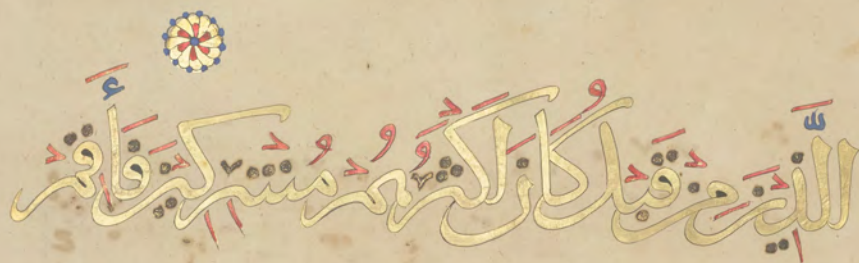 الَّذِينَ مِن قَبْلُ كَانَ أَكْثَرُهُم مُّشْرِكِينَ فَأَقِمْ